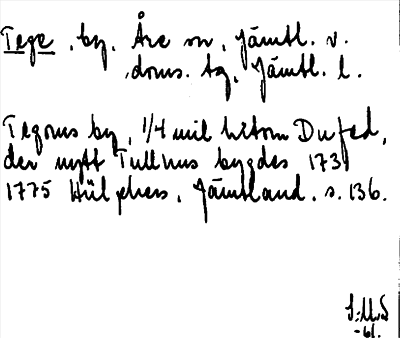 Tege, by, Åre sn, Jämtl. v.
doms. tg, Jämtl. l.
Tegorus by, 1/4 mil hitom Dufed,
der nytt Tullhus bygdes 173
1775 Hülphers, Jämtland. s. 136.
-61.